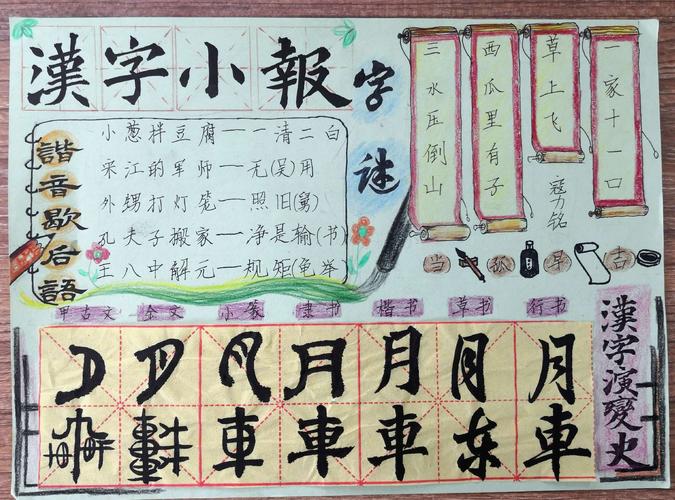 漢字小報
諧音歇后語
小葱拌豆腐——一清二白
宋江的军师——无(吴)用
外甥打灯笼——照旧(舅)
孔夫子搬家——净是输(书)
王八中解元——规矩(龟举)
字谜
三水压倒山
西瓜里有子
草上飞
一家十一口
寇力铭
当 孤 早 吉
甲古文 金文 小篆 隶书 楷书 草书 行书
月 月 月 月 月 月 月
車 車 車 車 車 东 車
漢字演變史